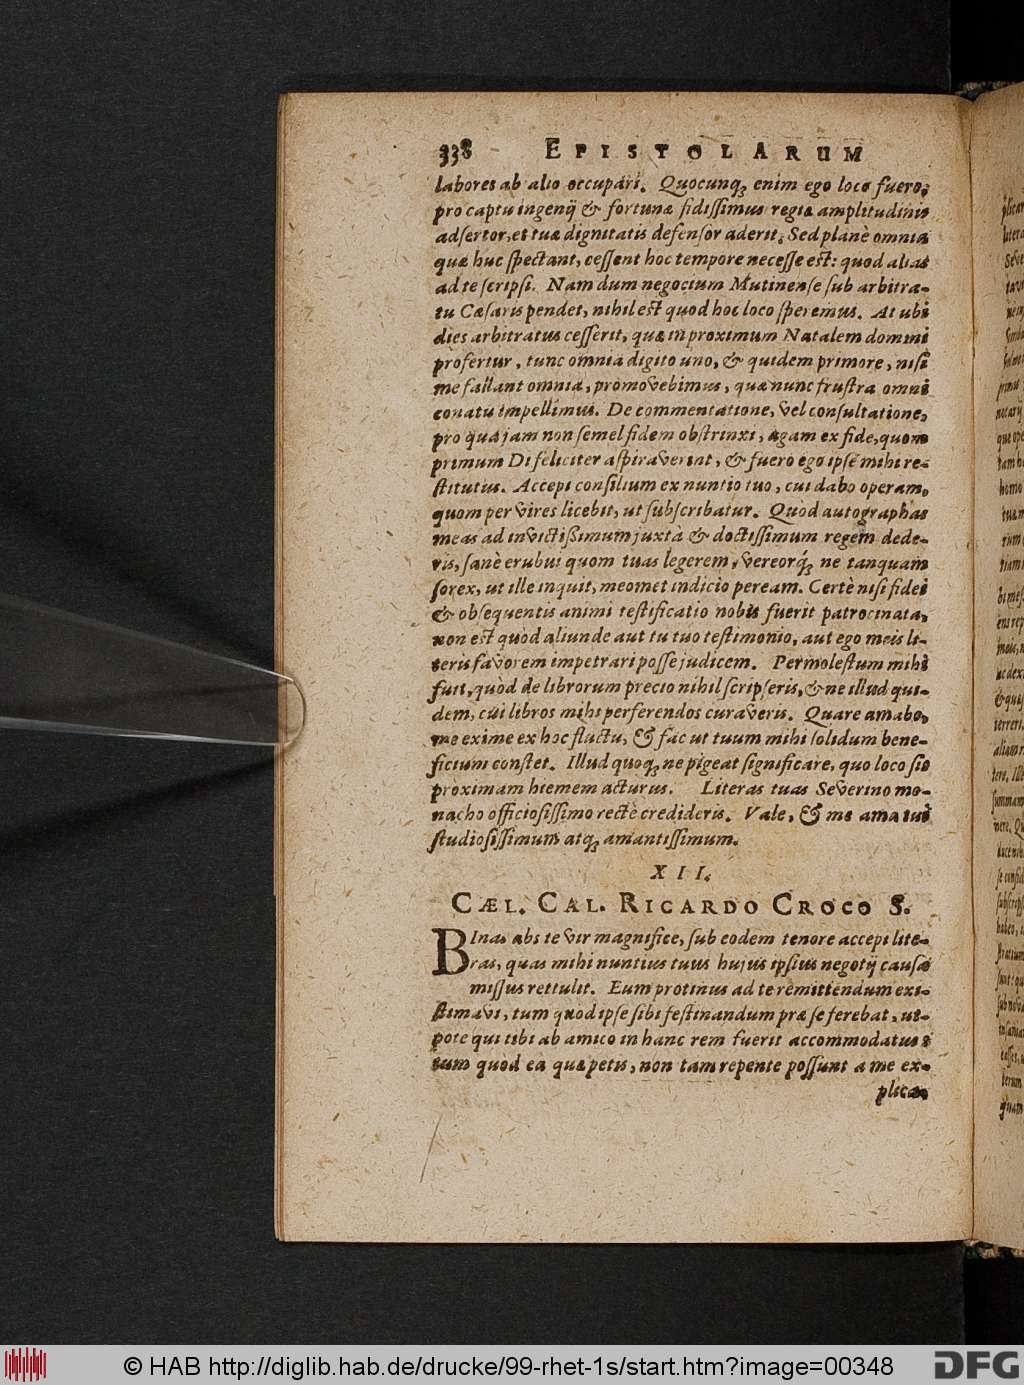 338 EPISTOLARUM
labores ab alio occupari. Quocunq; enim ego loco fuero,
pro captu ingenij & fortunæ fidissimus regiæ amplitudinis
adsertor, et tuæ dignitatis defensor aderit. Sed planè omnia
quæ huc spectant, cessent hoc tempore necesse est: quod alias
ad te scripsi. Nam dum negocium Mutinense sub arbitra-
tu Cæsaris pendet, nihil est quod hoc loco speremus. At ubi
dies arbitratus cesserit, quæ in proximum Natalem domini
profertur, tunc omnia digito uno, & quidem primore, nisi
me fallant omnia, promovebimus, quæ nunc frustra omni
conatu impellimus. De commentatione, vel consultatione,
pro qua jam non semel fidem obstrinxi, agam ex fide, quom
primum Di feliciter aspiraverint, & fuero ego ipse mihi re-
stitutus. Accepi consilium ex nuntio tuo, cui dabo operam,
quom per vires licebit, ut subscribatur. Quòd autographas
meas ad invictißimum juxtà & doctissimum regem dede-
ris, sanè erubui quom tuas legerem, vereorq́; ne tanquam
sorex, ut ille inquit, meomet indicio peream. Certè nisi fidei
& obsequentis animi testificatio nobis fuerit patrocinata,
non est quòd aliunde aut tu tuo testimonio, aut ego meis li-
teris favorem impetrari posse judicem. Permolestum mihi
fuit, quòd de librorum precio nihil scripseris, & ne illud qui-
dem, cui libros mihi perferendos curaveris. Quare amabo,
me exime ex hoc fluctu, & fac ut tuum mihi solidum bene-
ficium constet. Illud quoq; ne pigeat significare, quo loco sis
proximam hiemem acturus. Literas tuas Severino mo-
nacho officiosissimo rectè credideris. Vale, & me ama tui
studiosissimum atq; amantissimum.
XII.
CÆL. CAL. RICARDO CROCO S.
BInas abs te vir magnifice, sub eodem tenore accepi lite-
ras, quas mihi nuntius tuus hujus ipsius negotij causa
missus rettulit. Eum protinus ad te remittendum exi-
stimavi, tum quod ipse sibi festinandum præ se ferebat, ut-
pote qui tibi ab amico in hanc rem fuerit accommodatus:
tum quod ea quæ petis, non tam repente possunt a me ex-
plica-
© HAB http://diglib.hab.de/drucke/99-rhet-1s/start.htm?image=00348
DFG